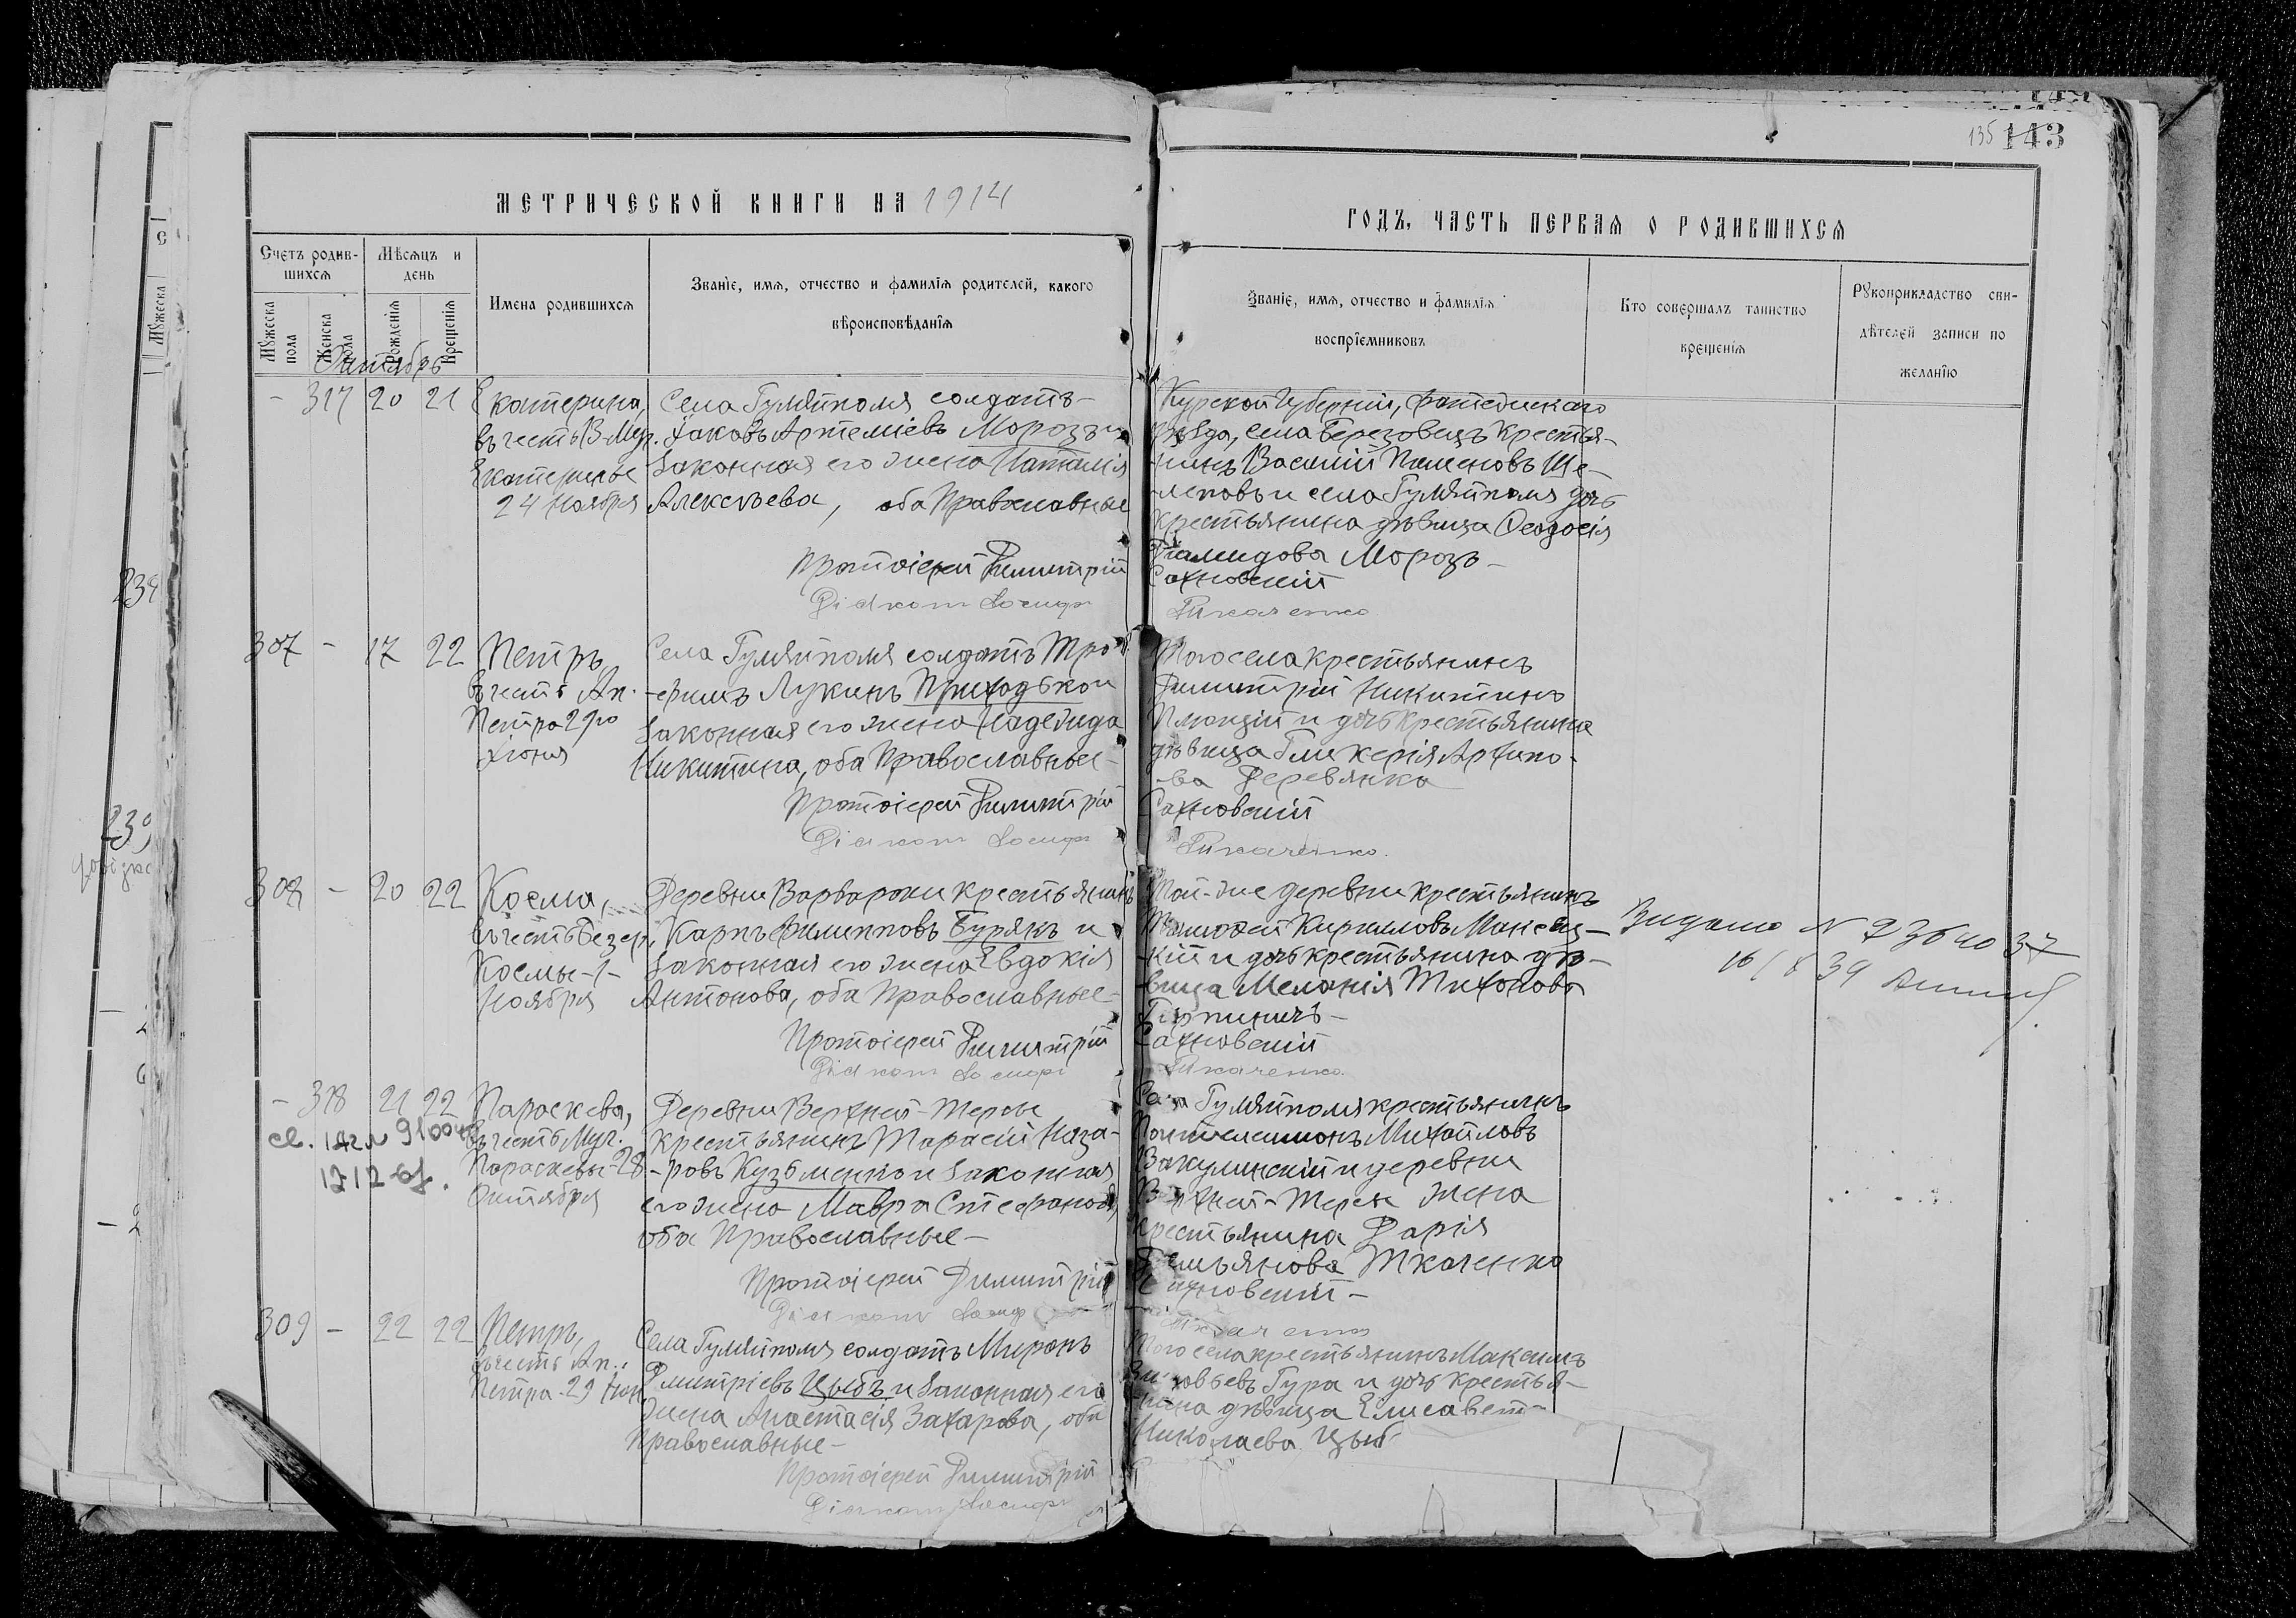 135 143
МЕТРИЧЕСКОЙ КНИГИ НА 1914
ГОДЪ, ЧАСТЬ ПЕРВАЯ О РОДИВШИХСЯ
Счетъ родив-
шихся
Мужеска пола
Женска пола
Мѣсяцъ и
день
Рожденія
Крещенія
Имена родившихся
Званіе, имя, отчество и фамилія родителей, какого
вѣроисповѣданія
Званіе, имя, отчество и фамилія
воспріемниковъ
Кто совершалъ таинство
крещенія
Рукоприкладство сви-
дѣтелей записи по
желанію
Октябрь
- 317 20 21
Екатерина,
въ честь В. Муч.
Екатерины
24 Ноября
Села Гуляйполя солдатъ-
Іаковъ Артеміевъ Морозъ и
законная его жена Наталія
Алексѣева, оба Православные
Протоіерей Димитрій
Діаконъ Іосифъ
Курской Губерніи, Фатежскаго
уѣзда, села Березовецъ крестья-
нинъ Василій Пименовъ Ще-
и села Гуляйполя дочь
крестьянина дѣвица Ѳеодосія
Морозъ-
Сахновскій
Ткаченко
307 - 17 22
Петръ,
въ честь Ап.
Петра 29го
Іюня
Села Гуляйполя солдатъ Тро-
-фимъ Лукинъ Приходько и
законная его жена Надежда
Никитина, оба Православные-
Протоіерей Димитрій
Діаконъ Іосифъ
Того села крестьянинъ
Димитрій Никитинъ
и дочь крестьянина
дѣвица Гликерія Архипо-
-ва Деревянко
Сахновскій
Ткаченко.
308 - 20 22
Косма,
въ честь Безср.
Космы-1-
Ноября
Деревни Варваровки крестьянинъ
Карпъ Филипповъ Бурякъ и
законная его жена Евдокія
Антонова, оба Православные-
Протоіерей Димитрій
Діаконъ Іосифъ
Той-же деревни крестьянинъ
Тимоѳей Кирилловъ
-кій и дочь крестьянина дѣ-
вица Меланія Тихонова
Сахновскій
Ткаченко.
Видано N
39
- 318 21 22
Параскева,
въ честь Муч.
Параскевы-28
Октября
Деревни Верхней-Терсы
крестьянинъ Тарасій Наза-
-ровъ Кузьменко и законная
его жена Мавра Стефанова,
оба Православные-
Протоіерей Димитрій
Діаконъ Іосифъ
Села Гуляйполя крестьянинъ
Пантелеимонъ Михайловъ
Вакулинскій и деревни
Верхней-Терсы жена
крестьянина Дарія
Емельянова Ткаченко
Сахновскій-
Ткаченко
309 - 22 22
Петръ,
въ честь Ап.
Петра-29 Іюн
Села Гуляйполя солдатъ Миронъ
Дмитріевъ Цыбъ и законная его
жена Анастасія Захарова, оба
Православные-
Протоіерей Димитрій
Діаконъ Іосифъ
Того села крестьянинъ Максимъ
Зиновьевъ Гура и дочь крестья-
-нина дѣвица Елисавет-
Николаева Цыб